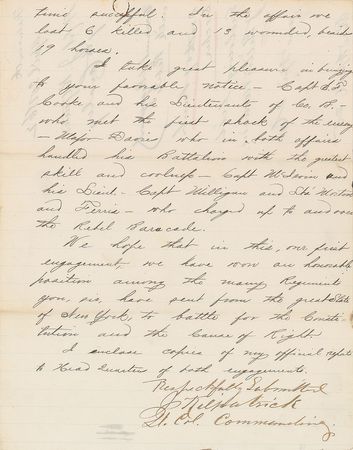 time successful. In the affair we
lost 6 killed and 13 wounded besides
19 horses.
I take great pleasure in bringing
to your favorable notice - Capt
Cooke and his Lieutenants of Co. B. -
who met the first shock of the enemy
- Major Davies who in both affairs
handled his Battalion with the greatest
skill and coolness - Capt Wilson and
his Lieut. - Capt Milligan and Lts Morton
and Ferris - who charged up to and over
the Rebel Baracade.
We hope that in this, our first
engagement, we have won an honorable
position among the many Regiments
you, sir, have sent from the great State
of New York, to battle for the Consti-
tution and the Cause of Right.
I enclose copies of my official report
to Head Quarters of both engagements.
Respectfully Submitted
J Kilpatrick
Lt. Col. Commanding.